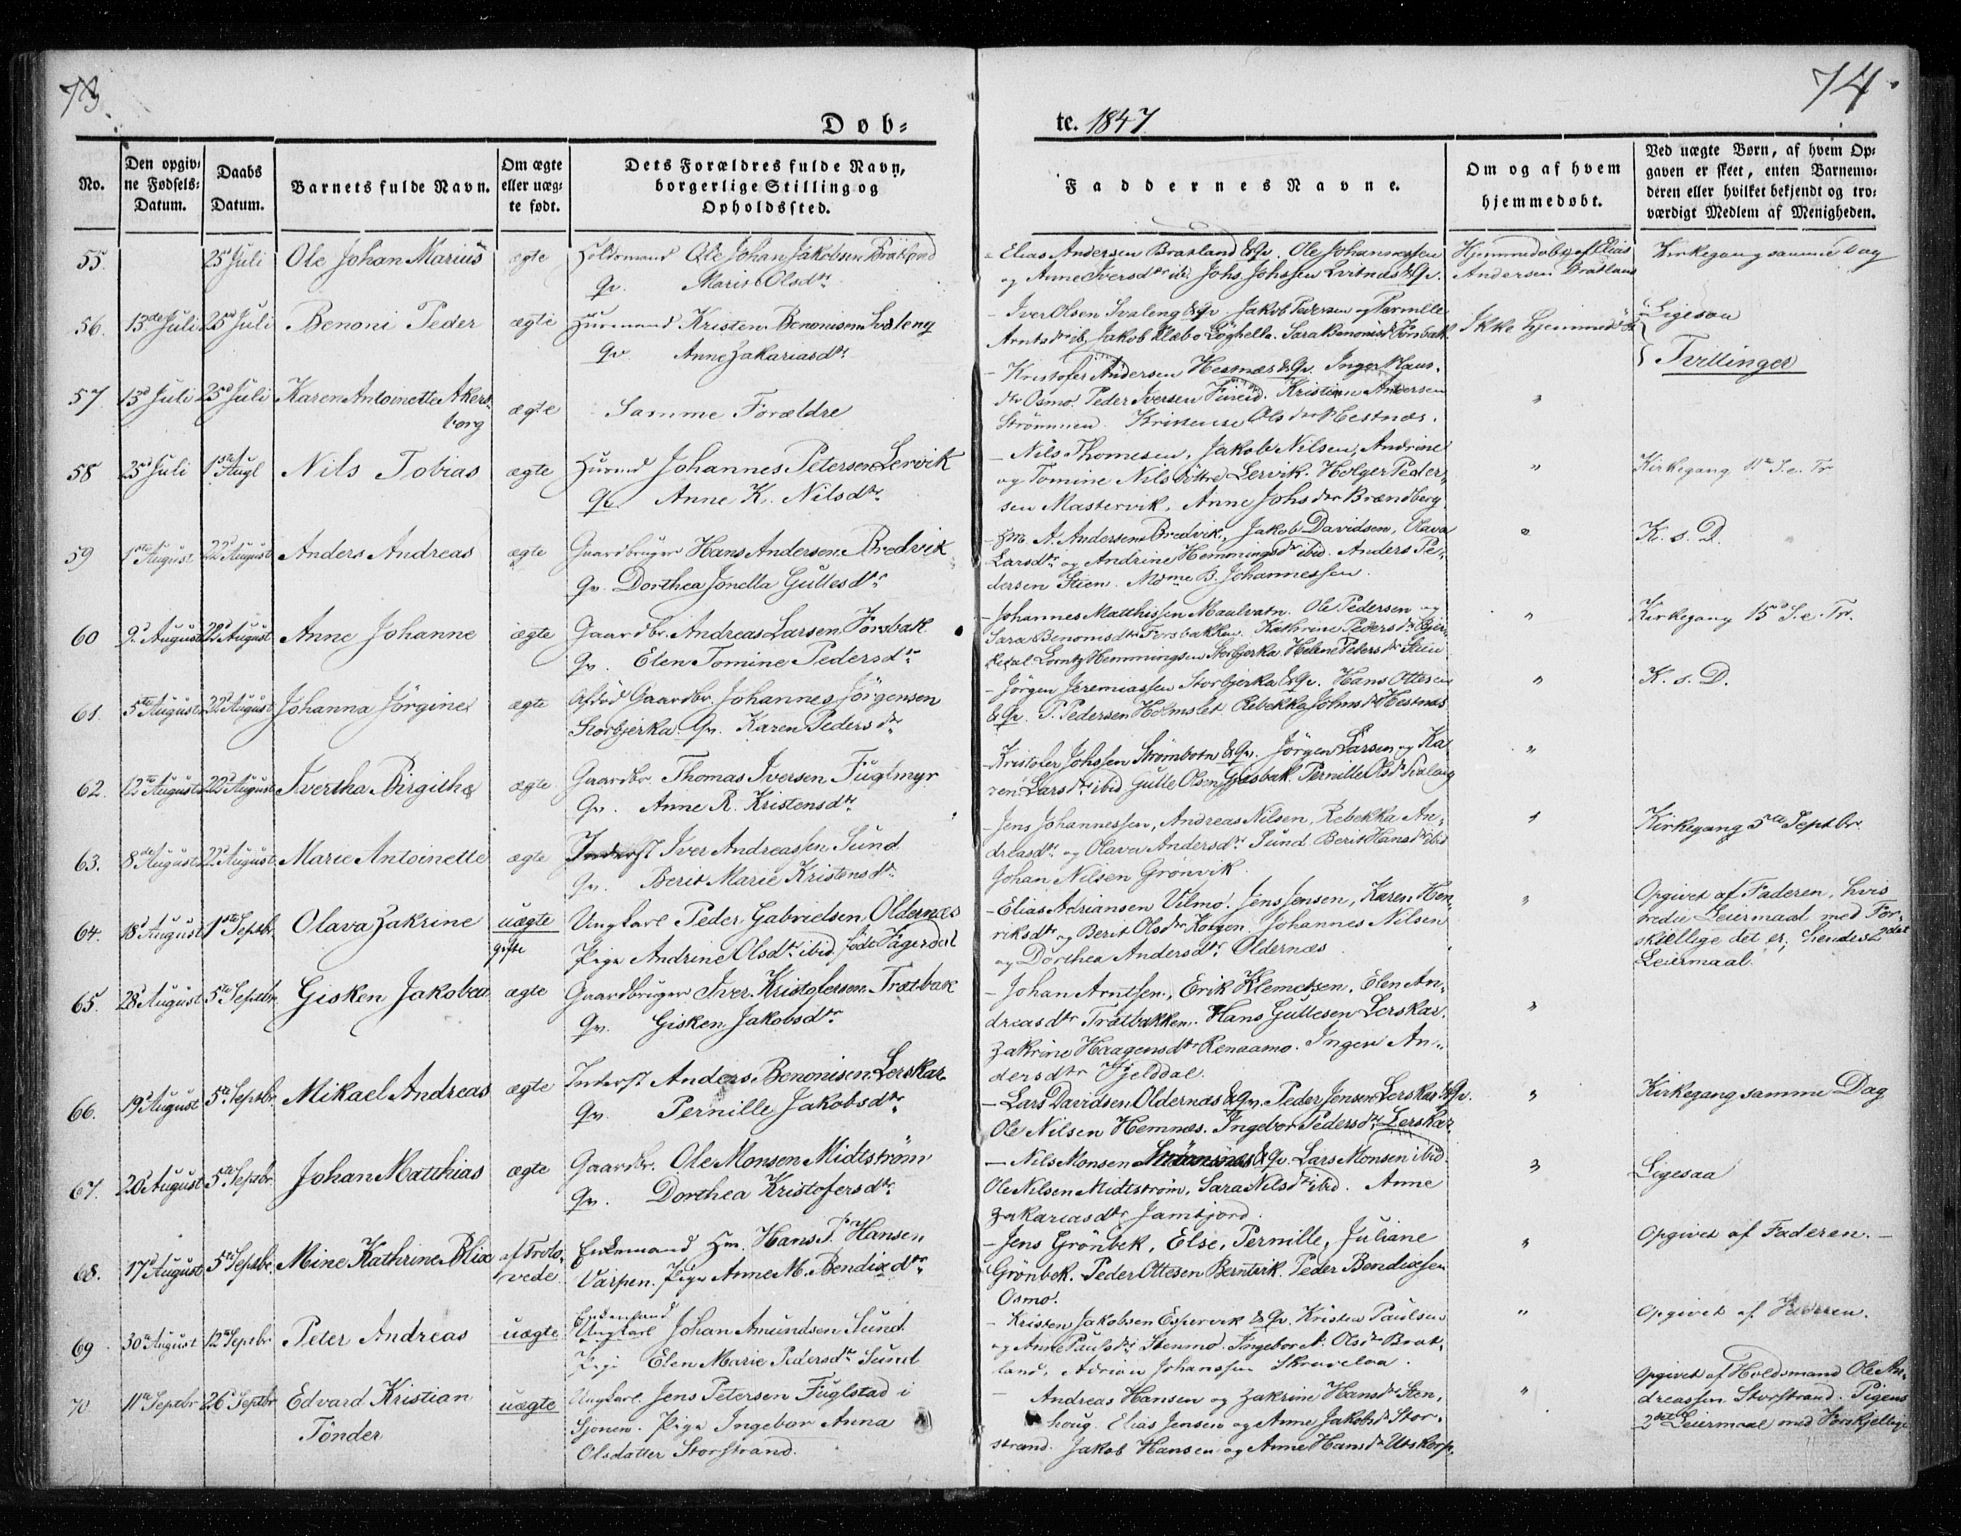 73.
74.
Døb-
te. 1847
No.
Den opgiv-
ne Fødsels-
Datum.
Daabs
Datum.
Barnets fulde Navn.
Om ægte
eller uæg-
te født.
Dets Forældres fulde Navn,
borgerlige Stilling og
Opholdssted.
Faddernes Navne.
Om og af hvem
hjemmedøbt.
Ved uægte Børn, af hvem Op-
gaven er skeet, enten Barnemo-
deren eller hvilket bekjendt og tro-
værdigt Medlem af Menigheden.
55. 25d Juli Ole Johan Marius ægte Holdsmand Ole Johan Jakobsen
Qv. Marit Olsdtr
Elias Andersen Brasland & Qv. Ole Johannessen
og Anne Iversdtr ibid. Johs Johssen Kvitnæs & Qv.
Hjemmedøbt af Elias
Andersen Brasland
Kirkegang samme Dag
56. 13de Juli 25d Juli Benoni Peder ægte Huusmand Kristen Benonisen Svaleng
Qv. Anne Zakariasdtr
- Iver Olsen Svaleng & Qv. Jakob Pedersen og Pernille
Arntsdtr ib. Jakob Klæbo Sara Benonisdtr Forsbak
Ikke hjemmedøbt
Ligesaa
Tvillinger
57. 13d Juli 25d Juli Karen Antoinette Akers-
borg
ægte Samme Forældre
- Kristofer Andersen Hesnæs & Qv. Inger Hans-
dtr Osmo. Peder Iversen Kristian Andersen
Strømmen. Olsdtr Hestnæs.
58 25d Juli 1ste Augt Nils Tobias ægte Husmd Johannes Petersen Lervik
Qv. Anne K. Nilsdtr
- Nils Thomesen, Jakob Nilsen, Andrine
og Tomine Nilsdöttre Lervik. Holger Peder-
sen Mastervik, Anne Johsdtr Brændberg
Kirkegang 11te S. e. Tr.
59 1ste August 22d August Anders Andreas ægte Gaardbruger Hans Andersen Bredvik
Qv. Dorthea Jonetta Gullesdtr
- Hm. A. Andersen Bredvik, Jakob Davidsen, Olava
Larsdtr og Andrine Hemmingsdtr ibid. Anders Pe-
dersen Stien. B. Johannessen.
K. s. D.
60 9d August 22d August Anne Johanne ægte Gaardbr. Andreas Larsen Forsbak
Qv. Elen Tomine Pedersdtr
- Johannes Matthissen Maalvatn. Ole Pedersen og
Sara Benonisdtr Forsbakken. Kathrine Pedersdtr Bjer-
Lorntz Hemmingsen Storbjerka Helene Petersdtr Stien
Kirkegang 15d S. e. Tr.
61. 5te August 22d August Johanna Jörgine ægte Afdød Gaardbr. Johannes Jörgensen
Storbjerka Qv. Karen Pedersdtr
- Jörgen Jeremiassen Storbjerka & Qv. Hans Ottesen
& Qv. P. Pedersen Holmslet. Rebekka Johnsdtr Hestnæs
K. s. D.
62. 12te August 22d August Ivertha Birgitha ægte Gaardbr. Thomas Iversen Fuglmyr
Qv. Anne R. Kristensdtr
- Kristofer Johssen Strømbotn & Qv. Jörgen Larsen og Ka-
ren Larsdtr ibid Gulle Olsen Pernille Olsdtr Svaleng
63. 8de August 22d August Marie Antoinette ægte Inderst Iver Andreassen Sund
Qv. Berit Marie Kristensdtr
- Jens Johannessen, Andreas Nilsen, Rebekka An-
dreasdtr og Olava Andersdtr Sund Berit Hansdtr ibid
Johan Nilsen Grönvik.
Kirkegang 5te Septbr.
64. 18d August 1ste Septbr. Olava Zakrine uægte Ungkarl Peder Gabrielsen Oldernæs
Pige Andrine Olsdtr ibid
- Elias Adriansen Vilmo. Jens Jensen, Karen Hen-
riksdtr og Berit Olsdtr Korgen. Johannes Nilsen
og Dorthea Andersdtr Oldernæs
Opgivet af Faderen, hvis
tredie Leiermaal med For-
skiellige det er; hendes 2det
Leiermaal.
65. 28d August 5te Septbr. Gisken Jakobea ægte Gaardbruger Iver Kristofersen Trætbak
Qv. Gisken Jakobsdtr
- Johan Arntsen, Erik Klemetsen. Elen An-
dreasdtr Trætbakken. Hans Gullesen Lerskar.
Zakrine Haagensdtr Renaamo. Inger An-
dersdtr Fjelddal.
66. 19d August 5te Septbr. Mikael Andreas ægte Inderst Anders Benonisen Lerskar
Qv. Pernille Jakobsdtr
- Lars Davidsen Oldernæs & Qv. Peder Jensen Lerskar & Qv.
Ole Nilsen Hemnæs. Ingebor Pedersdtr Lerskar
Kirkegang samme Dag
67. 20d August 5te Septbr. Johan Matthias ægte Gaardbr. Ole Monsen Midtström
Qv. Dorthea Kristofersdtr
- Nils Monsen & Qv. Lars Monsen ibid.
Ole Nilsen Midtström, Sara Nilsdtr ibid. Anne
Zakariasdtr Jamtjord.
Ligesaa
68. 17d August 5te Septbr. Mine Kathrine Blix af Trolo-
vede.
Enkemand Hm. Hans P. Hansen
Varpen. Pige Anne M. Bendixdtr
- Jens Grönbek, Else, Pernille, Juliane
Grönbek. Peder Ottesen Berntvik. Peder Bendixsen
Osmo.
Opgivet af Faderen. -
69 30te August 12te Septbr. Peter Andreas uægte
Ungkarl Johan Amundsen Sund
Pige Elen Marie Pedersdtr Sund
- Kristen Jakobsen Espervik & Qv. Kristen Paulsen
og Anne Paulsdtr Stenmo. Ingebor A. Olsdtr Brat-
land, Adrian Johanssen
Opgivet af Faderen.
70 11te Septbr 26d Septbr Edvard Kristian
Tönder
uægte Ungkarl. Jens Petersen Fuglstad i
Sjonen. Pige Ingebor Anna
Olsdatter Storstrand.
Andreas Hansen og Zakrine Hansdtr Sten-
houg. Elias Jensen og Anne Jakobsdtr Stor-
strand. Jakob Hansen og Anne Hansdtr Utskarp.
Opgivet af Holdsmand Ole An-
dreassen Storstrand. Pigens
2det Leiermaal med Forskjellige